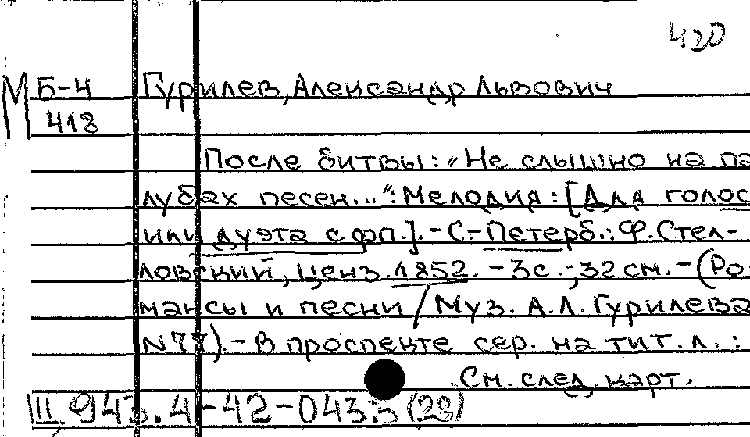 420
М Б-4 Гурилев, Александр Львович
418
После битвы: "Не слышно на па
лубах песен...": Мелодия: [Для голос
или дуэта с фп.]. - С.-Петерб.: Ф. Стел-
ловский, ценз. 1852. - 3 с.; 32 см. - (Ро
мансы и песни / Муз. А.Л. Гурилева
N 77). - В проспекте сер. на тит. л.:
См. след. карт.
III 943.4-42-043.5 (28)